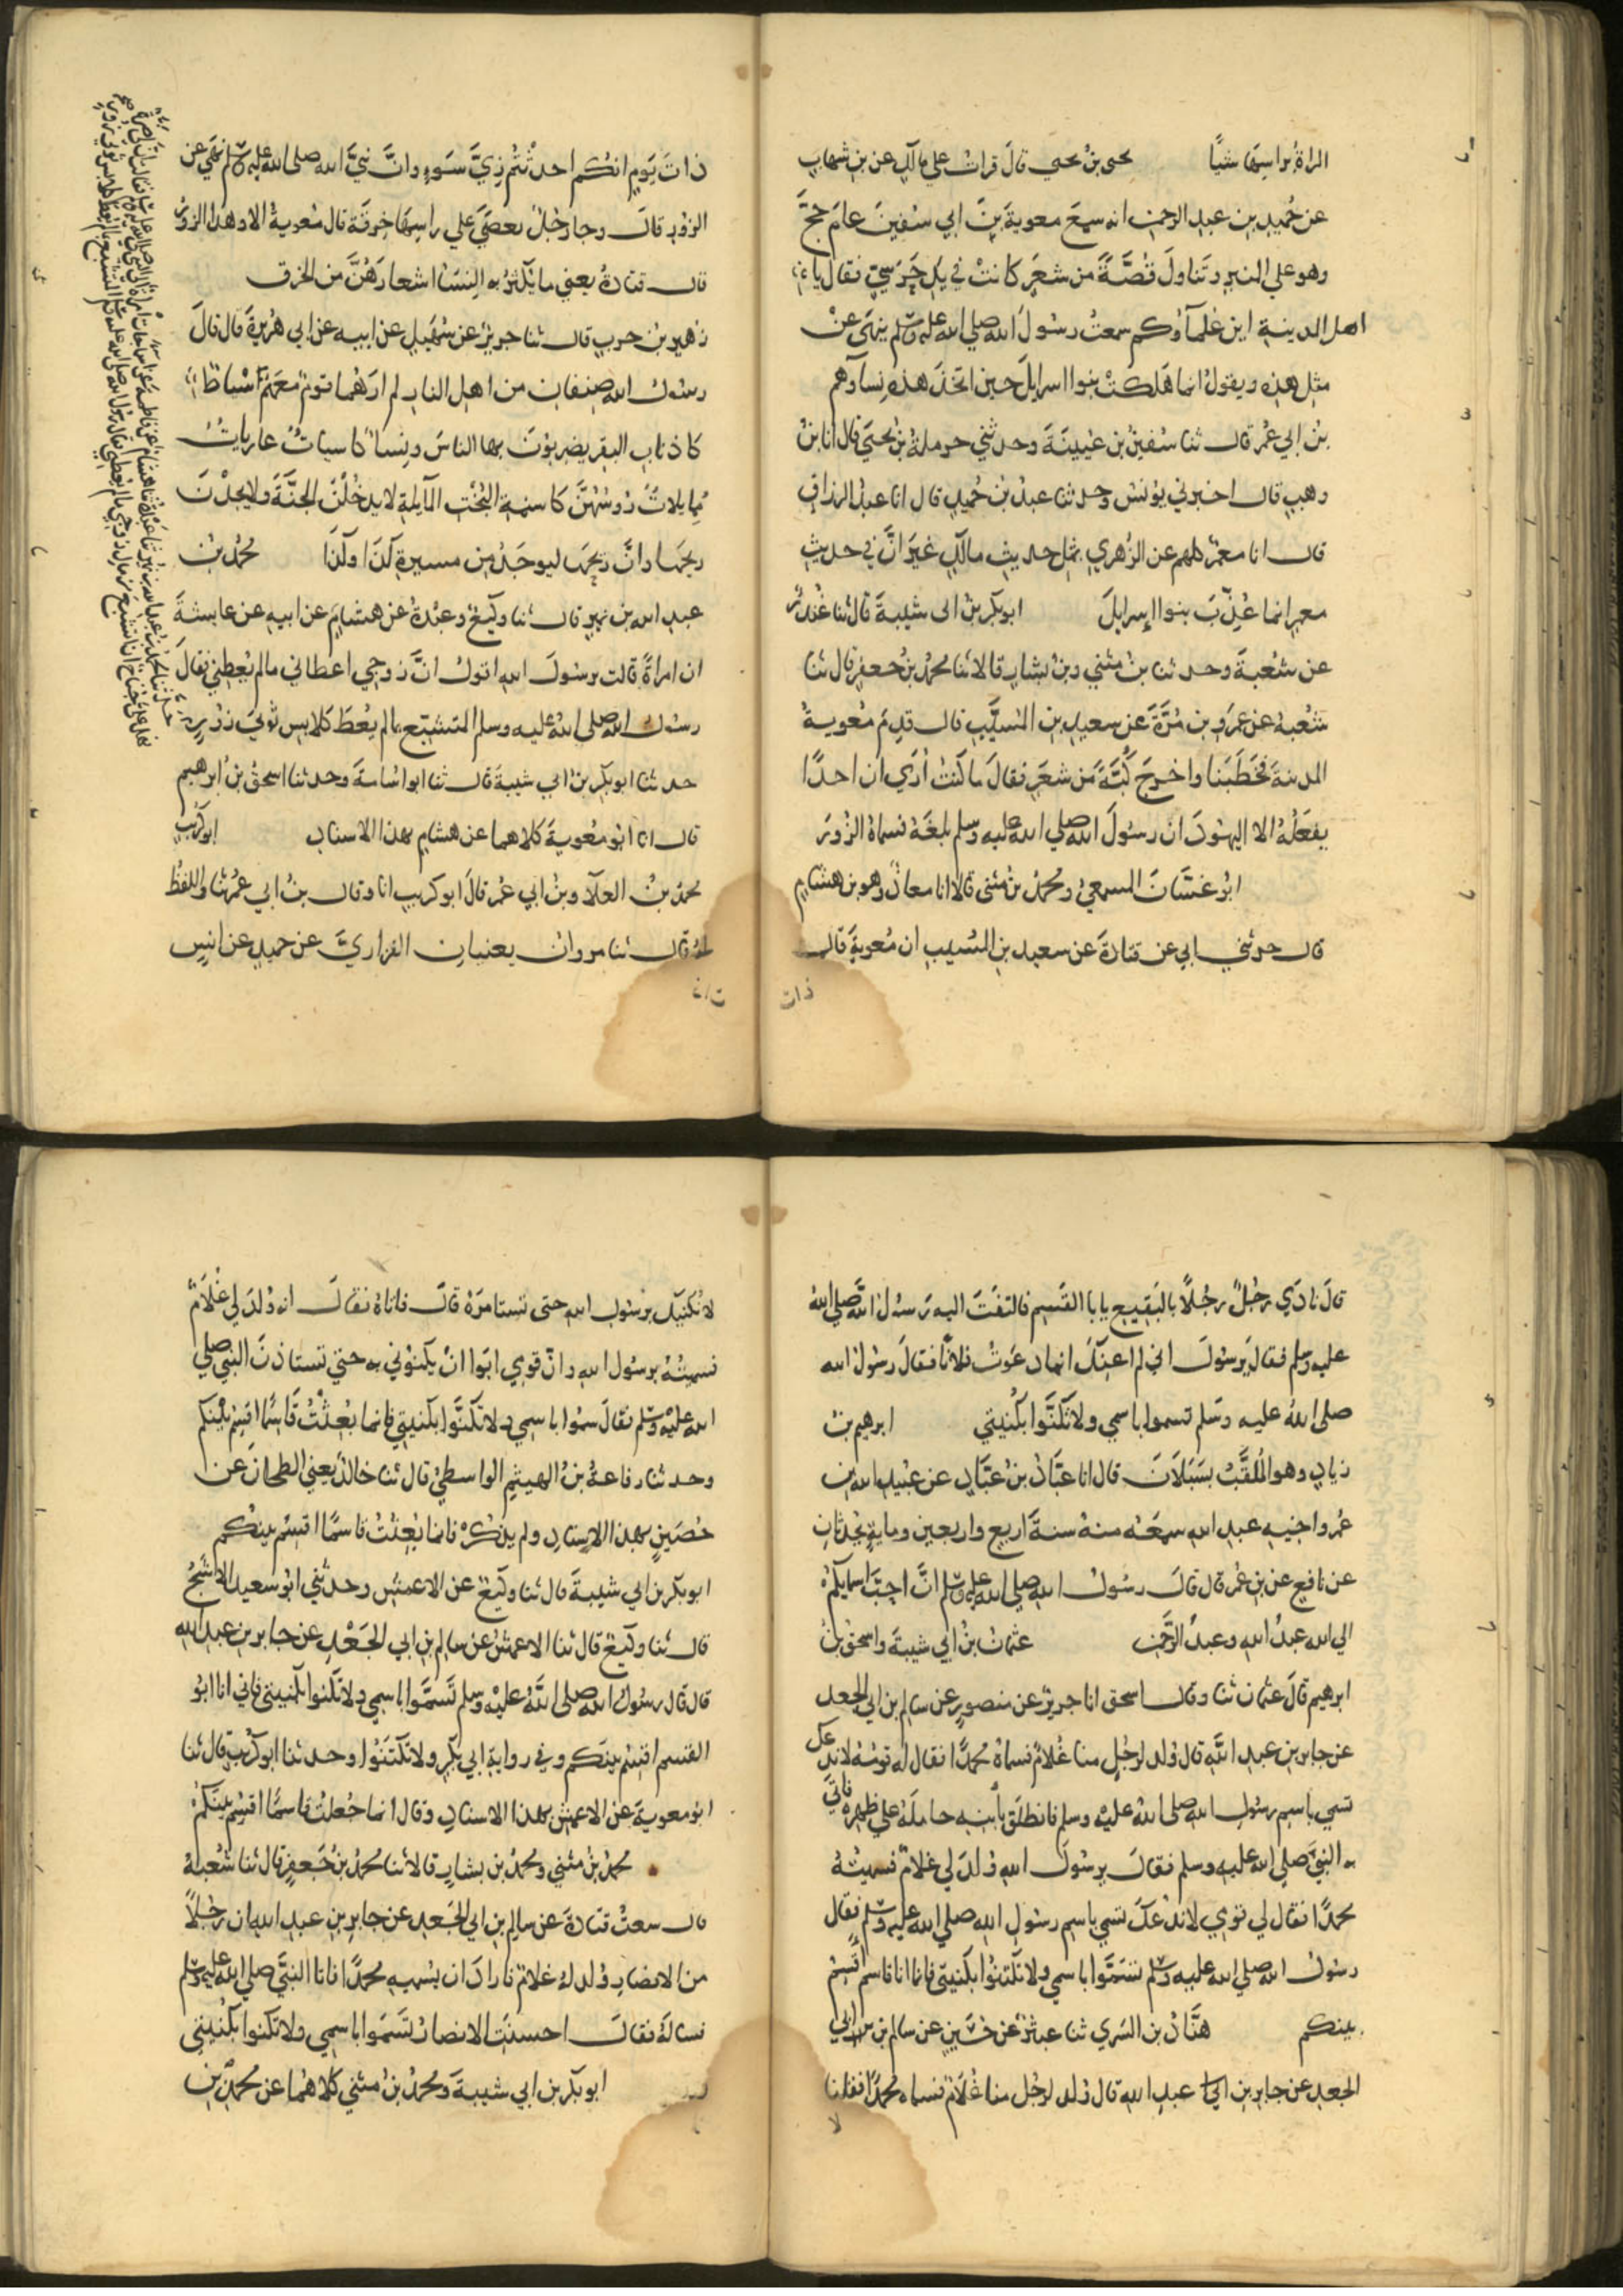 المراة براسها شيًا يحيى بن يحيى قال قرات على مالك عن بن شهاب
عن حُميد بن عبد الرحمن انه سمع معوية بن ابي سفين عام حج
وهو على المنبر وتناول قُصَّةً من شعر كانت في يد حَرَسيّ فقال يا
اهل المدينة اين علماوكم سمعتُ رسول الله صلى الله عليه وسلم ينهى عن
مثل هذه ويقول انما هلكت بنوا اسرايل حين اتخذ هذه نساوهم
بن ابي عُمر قال ثنا سُفين بن عُيينة وحدثني حرملة بن يحيى قال انا بن
وهب قال اخبرني يونس وحدثنا عبد بن حُميد قال انا عبد الرزاق
قال انا معمر كلهم عن الزُهري بمثل حديث مالك غير انّ في حديث
معمر انما عُذّب بنوا اسرايل ابو بكر بن ابي شيبة قال ثنا غُندر
عن شعبة وحدثنا بن مثنى وبن بشار قالا ثنا محمد بن جعفر قال ثنا
شعبة عن عمرو بن مُرَّة عن سعيد بن المسيَّب قال قدم معوية
المدينة فخطبنا واخرج كُبَّةً من شعر فقال ما كنتُ أُرَي ان احدًا
يفعلُهُ الا اليهود ان رسول الله صلى الله عليه وسلم بلغهُ فسماهُ الزور
ابو غسّان المسمعي ومحمد بن مثنى قالا انا معاذ وهو بن هشام
قال حدثني ابي عن قتادة عن سعيد بن المُسيب ان مُعوية قال
ذات
ذات يوم انكم احدثتم زيّ سَوء وانّ نبيّ الله صلى الله عليه وسلم نهى عن
الزور قال وجا رجل بعصَي على راسها خِرقة قال مُعوية الا وهذا الزور
قال قتادة يعني ما يُكثّرُ به النسا اشعارهُنَّ من الخرق
زهير بن حرب قال ثنا جرير عن سُهيل عن ابيه عن ابي هُريرة قال قال
رسول الله صنفان من اهل النار لم ارهُما قوم معهم اسياط
كاذناب البقر يضربون بها الناس ونسا كاسيات عاريات
مايلات روسُهُنَّ كاسنمة البُخت المايلة لا يدخُلن الجنَّة ولا يجدْن
ريحها وانَّ ريحها ليوجَدُ من مسيرة كذا وكذا محمد بن
عبد الله بن نمير قال ثنا وكيع وعبدة عن هشام عن ابيه عن عايشة
ان امراةً قالت يرسول الله اقول انّ زوجي اعطاني ما لم يُعطني فقال
رسول الله صلى الله عليه وسلم المتشبّع بما لم يُعطَ كلابس ثوبَي زُور
حدثنا ابو بكر بن ابي شيبة قال ثنا ابو اسامة وحدثنا اسحق بن ابرهيم
قال انا ابو مُعوية كلاهما عن هشام بهذا الاسناد ابو كُريب
محمد بن العلا وبن ابي عُمر قال ابو كريب انا وقال بن ابي عُمر ثنا واللفظ
لهُ قال ثنا مروان يعنيان الفزاريَّ عن حميد عن انس
قال نادَي رجُلٌ رجُلاً بالبقيع يا با القسم فالتفت اليه رسول الله صلى الله
عليه وسلم فقال يرسول اني لم اعنِك انما دعوتُ فلانًا فقال رسول الله
صلى الله عليه وسلم تسموا باسمي ولا تَكَنَّوا بكُنيتي ابرهيم بن
زياد وهو المُلقَّب بسَبَلان قال انا عبّاد بن عبّاد عن عُبيد الله بن
عُمر واخيه عبد الله سمعه منهُ سنة اربع واربعين وماية يحدثان
عن نافع عن بن عُمر قال قال رسول الله صلى الله عليه وسلم انّ احبّ اسمايكم
الى الله عبدُ الله وعبدُ الرحمن عثمان بن ابي شيبة واسحق بن
ابرهيم قال عثمان ثنا وقال اسحق انا جرير عن منصور عن سالم بن ابي الجعد
عن جابر بن عبد الله قال وُلد لرجُل منا غُلامٌ فسماهُ محمدًا فقال له قومُه لا ندعك
تسمي باسم رسول الله صلى الله عليه وسلم فانطلق بأبنه حامله على ظهره فاتي
به النبيّ صلى الله عليه وسلم فقال يرسول الله وُلدَ لي غلامٌ فسميتهُ
محمدًا فقال لي قومي لا ندعك تسمي باسم رسول الله صلى الله عليه وسلم فقال
رسول الله صلى الله عليه وسلم تسَمَّوا باسمي ولا تكتنوا بكنيتي فانما انا قاسم اقسم
بينكم هنّاد بن السَري ثنا عبثر عن حُصين عن سالم بن ابي
الجعد عن جابر بن عبد الله قال وُلد لرجُل منا غُلامٌ فسماه محمدًا فقلنا
لا
لا نُكنيك برسول الله حتى تستامرَهُ قال فاتاهُ فقال انه وُلد لي غُلامٌ
فسميتُهُ برسول الله وانّ قومي ابَوا انْ يكنوُني به حتى تستاذنَ النبي صلى
الله عليه وسلم فقال سمُّوا باسمي ولا تَكَنَّوا بكنيتي فانما بُعِثْتُ قاسمًا اقسِمُ بينكم
وحدثنا رفاعة بن الهيثم الواسطي قال ثنا خالد يعني الطحان عن
حُصين بهذا الاسناد ولم يذكُر فانما بُعثتُ قاسمًا اقسم بينكم
ابو بكر بن ابي شيبة قال ثنا وكيع عن الاعمش وحدثني ابو سعيد الاشجُّ
قال ثنا وكيع قال ثنا الاعمش عن سالم بن ابي الجَعْد عن جابر بن عبد الله
قال قال رسول الله صلى الله عليه وسلم تَسمَّوا باسمي ولا تكنوا بكنيتي فاني انا ابو
القسم اقسم بينكم وفي رواية ابي بكر ولا تكتَنُوا وحدثنا ابو كُريب قال ثنا
ابو معوية عن الاعمش بهذا الاسناد وقال انما جُعلتُ قاسمًا اقسم بينكم
محمد بن مثنى ومحمد بن بشار قالا ثنا محمد بن جَعفر قال ثنا شُعبة
قال سمعتُ قتادة عن سالم بن ابي الجعد عن جابر بن عبد الله ان رجُلاً
من الانصار وُلد لهُ غلامٌ فارادَ ان يسميه محمدًا فاتا النبيَّ صلى الله عليه وسلم
فسالهُ فقال احسنَت الانصارُ تَسَمَّوا باسمي ولا تكنوا بكُنيتي
ابو بكر بن ابي شيبة ومحمد بن مثنى كلاهُما عن محمد بن